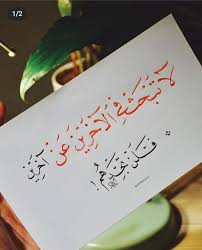 1/2
لا تبحث في الآخرين عن آخرين
فلن تجدهم!